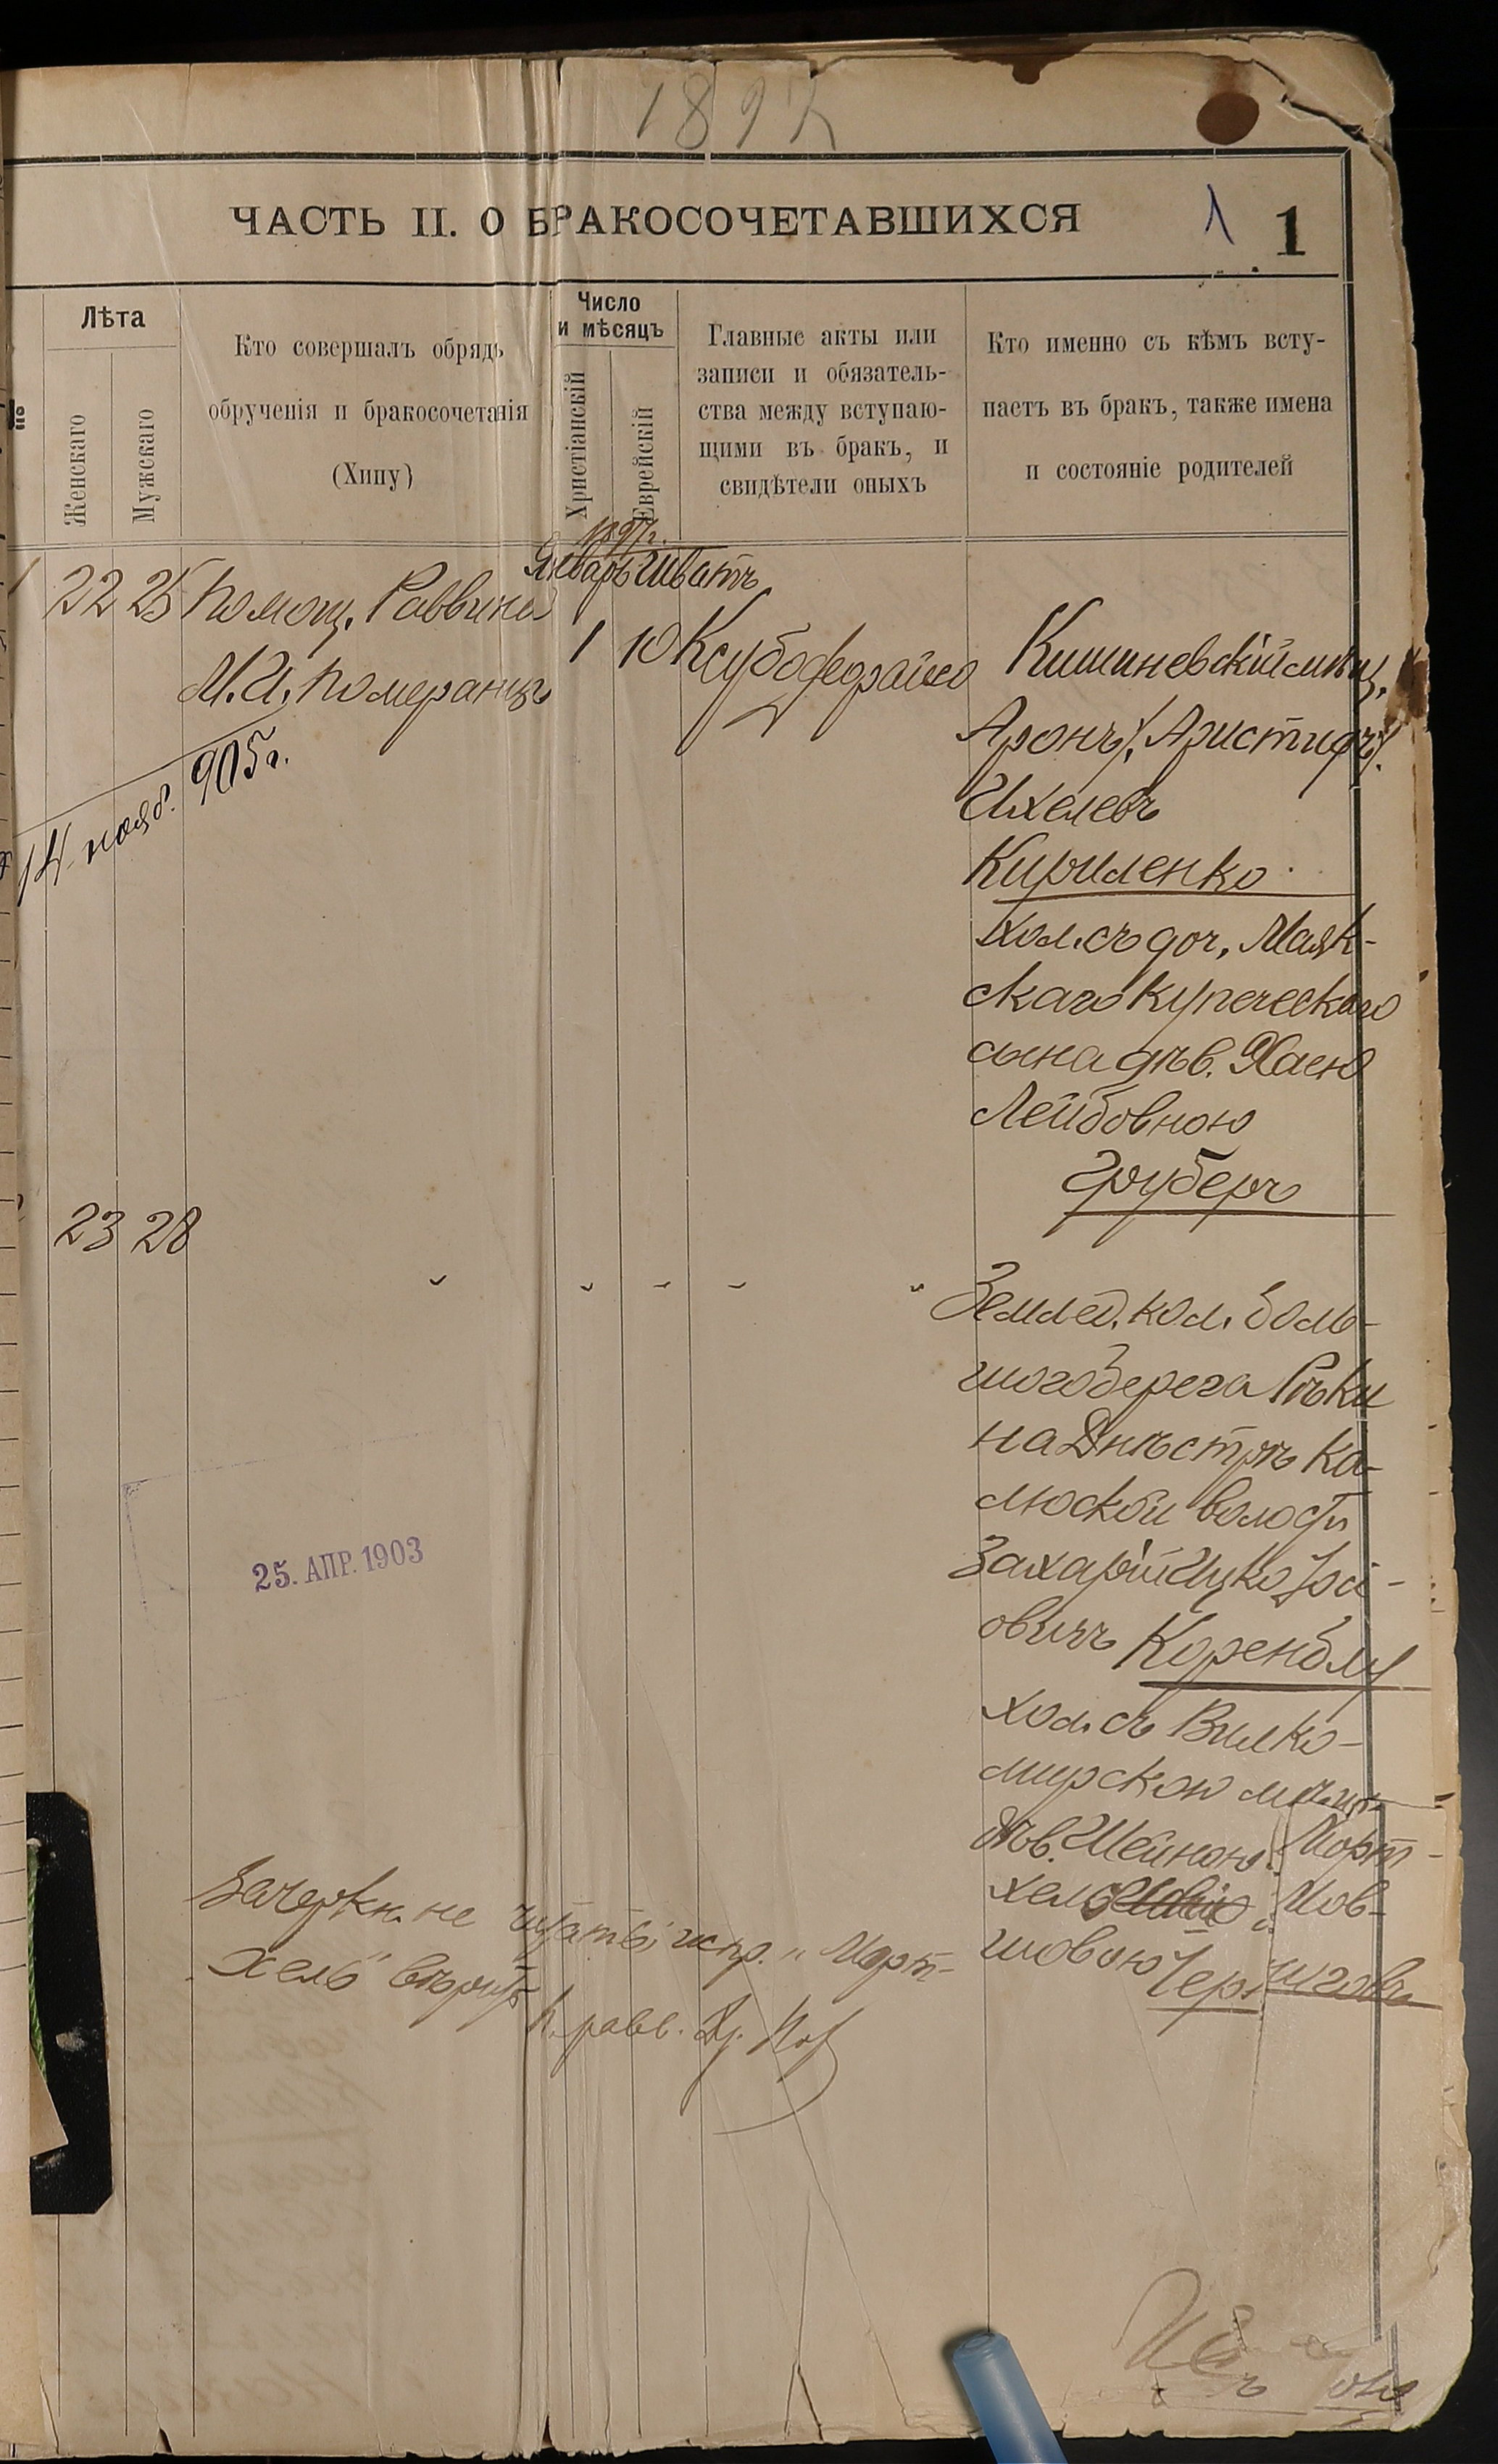 1897
ЧАСТЬ II. О БРАКОСОЧЕТАВШИХСЯ
1 1
Лѣта
Женскаго
Мужскаго
Кто совершалъ обрядъ
обрученія и бракосочетанія
(Хипу)
Число
и мѣсяцъ
Христіанскій
Еврейскій
Главные акты или
записи и обязатель-
ства между вступаю-
щими въ бракъ, и
свидѣтели оныхъ
Кто именно съ кѣмъ всту-
паетъ въ бракъ, также имена
и состояніе родителей
1897г.
Январь Шватъ
22 25 Помощ. Раввина
М. И. Померанцъ
1 10
Кишиневскій мѣщ.
Аронъ /:Аристидъ:/
Ихелевъ
Кириленко
хол. съ доч. Маяк-
скаго купеческаго
сына дѣв. Хаею
Лейбовною
Груберъ
14 нояб. 905г.
23 28
Землед. кол. боль-
шого берега Рѣки
на Днѣстрѣ Ка-
люской волости
Захарій Ицко
овичъ Коренблу
хол. съ Вилко-
мирскою мѣщ.
дѣв. Шейною Морт-
хель Мов-
шовою Чернигова
25. АПР. 1903
Зачеркн. не читать, испр. „Морт-
хель" вѣрить
К. равв. Др.